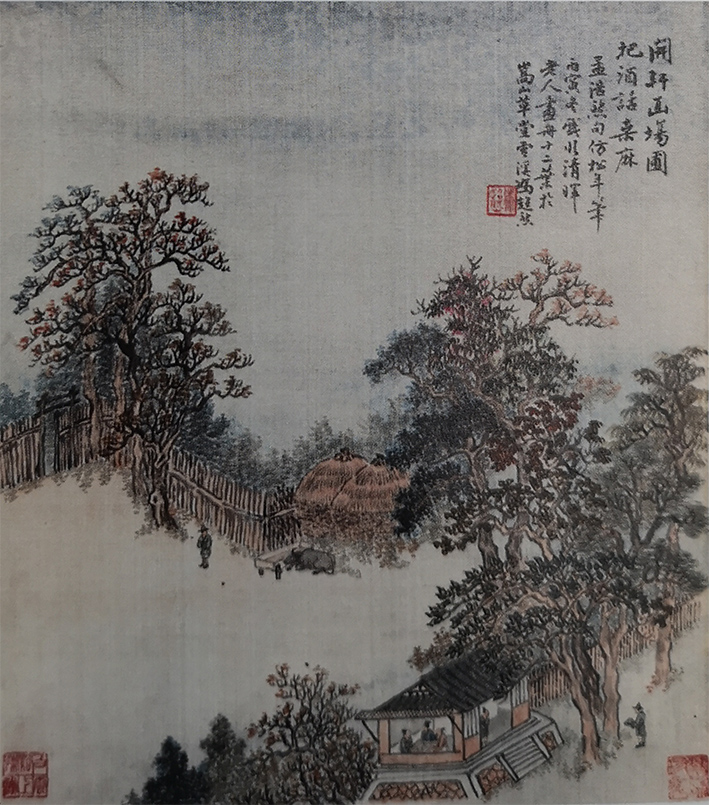 開軒面場圃
把酒話桑麻
孟浩然句仿松年筆
丙寅冬戲臨清暉
老人畫冊十二葉於
嵩山草堂雲溪馮超然